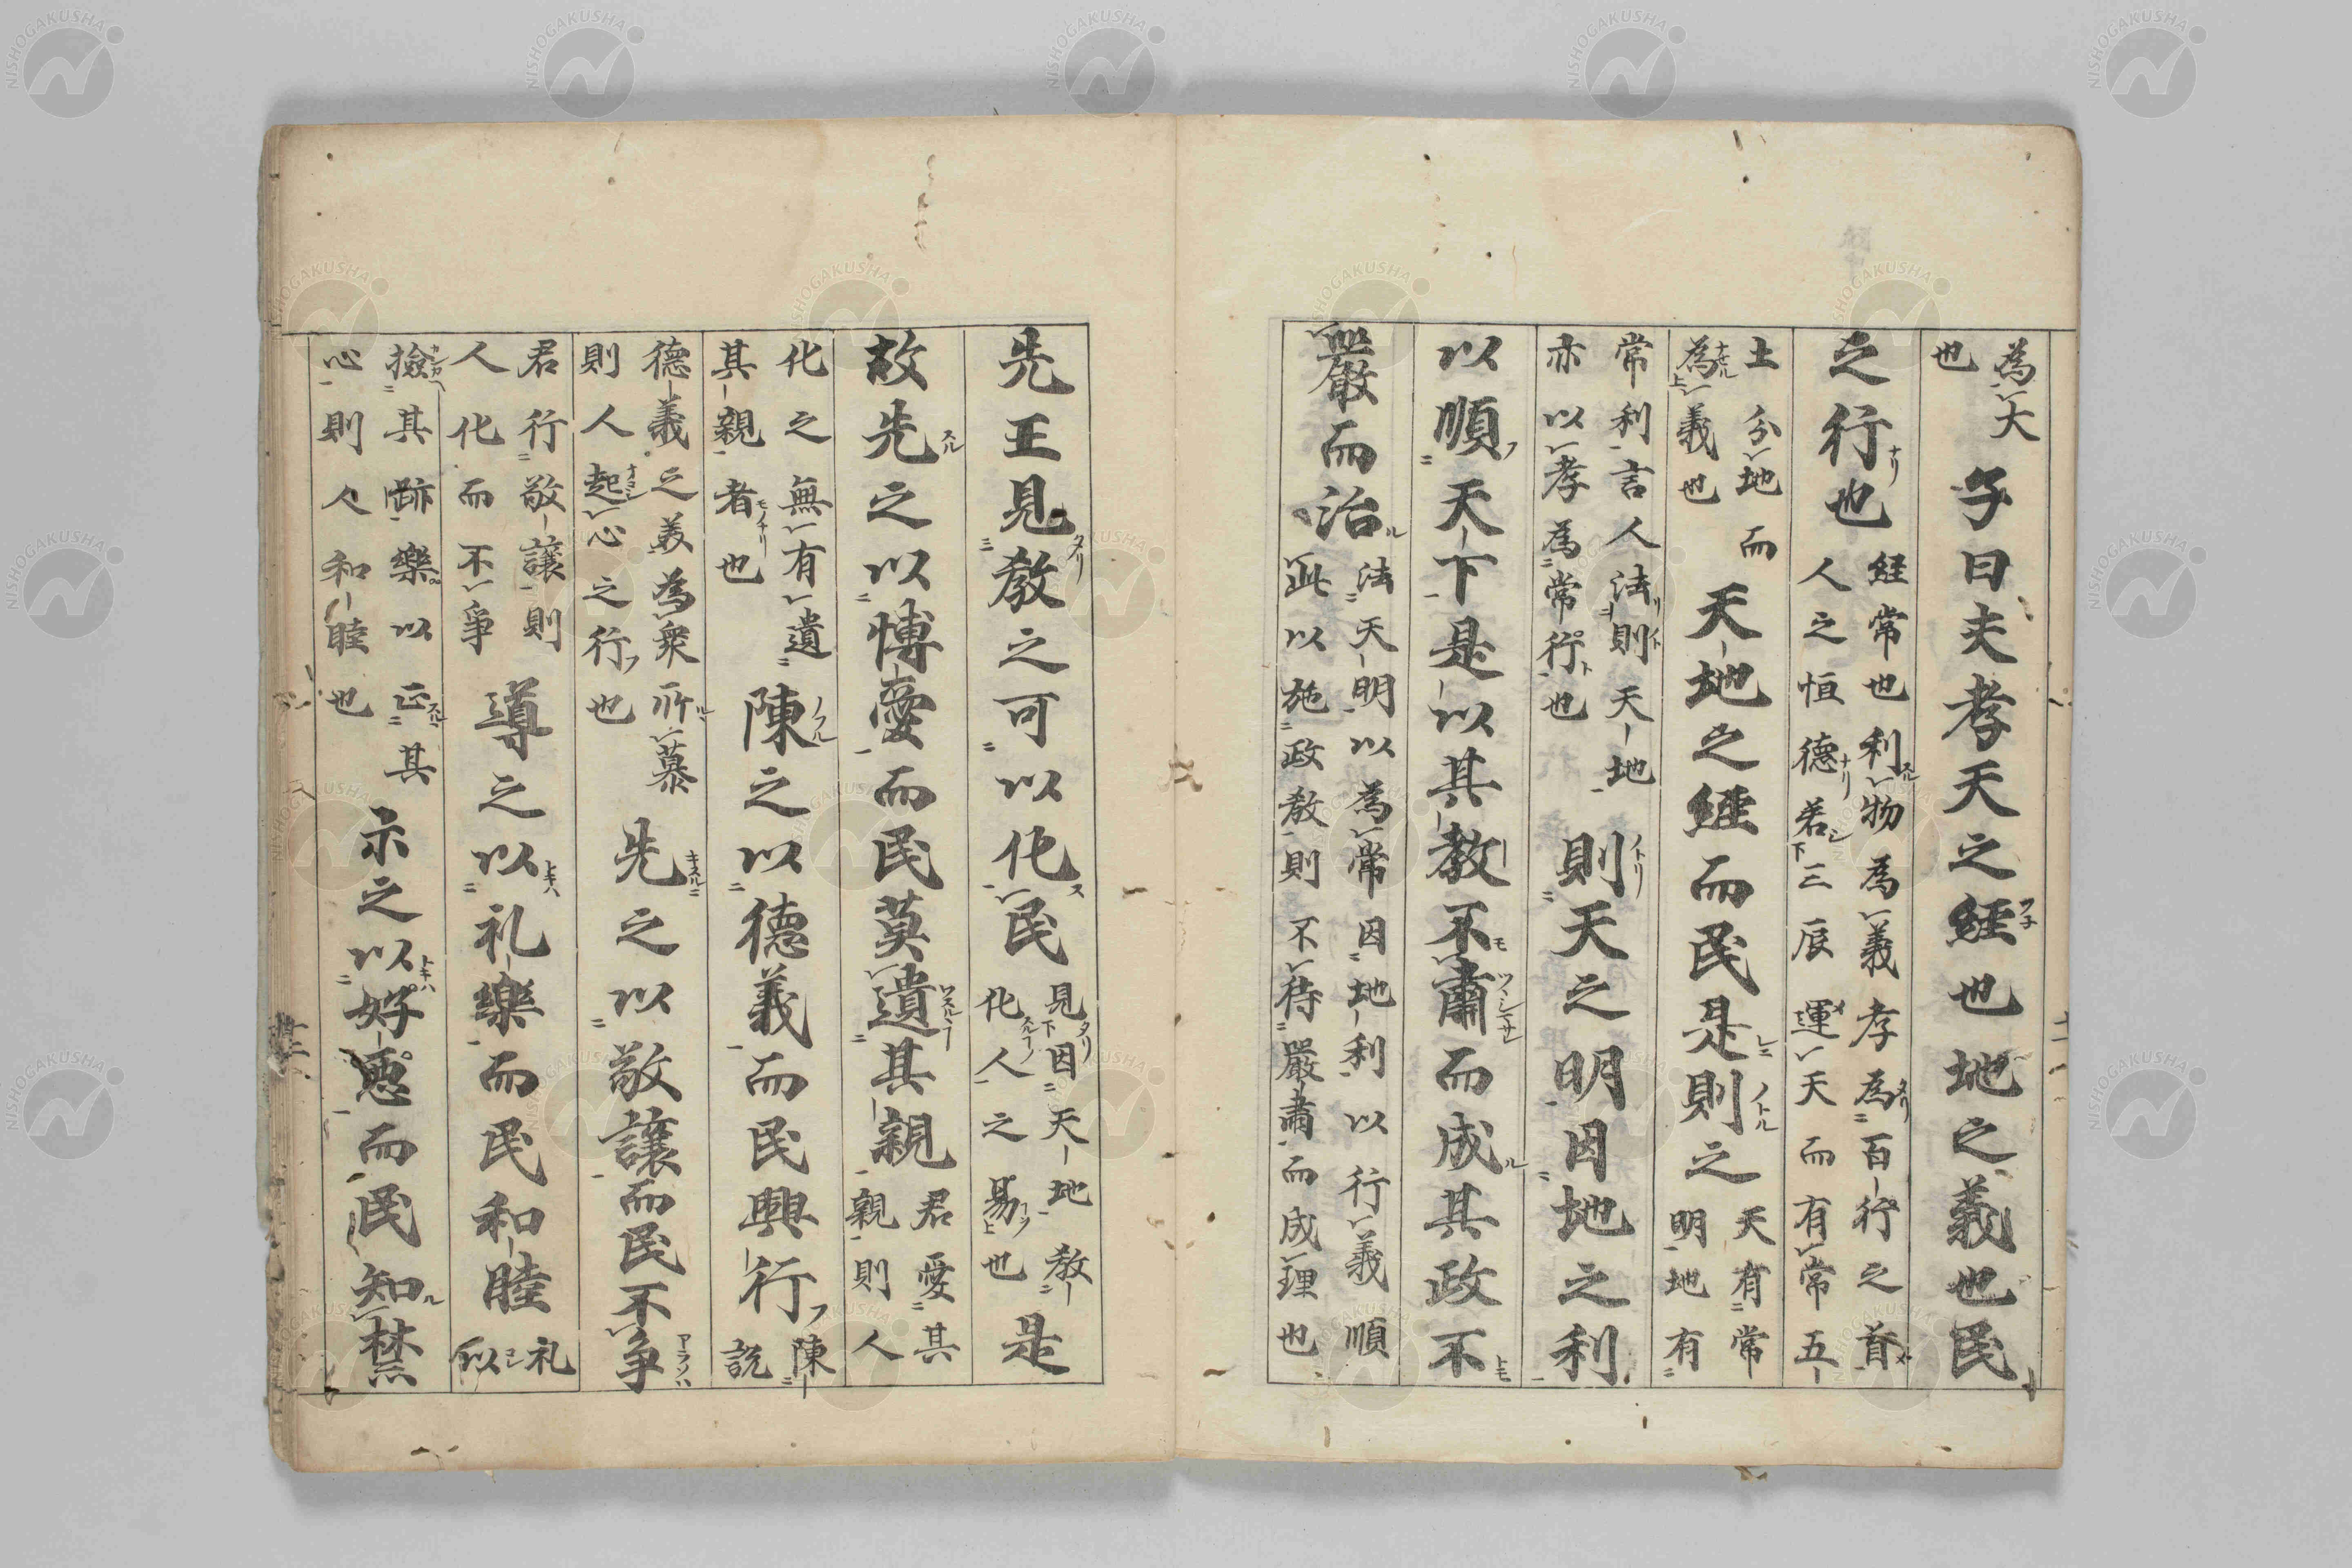 為大也子曰夫孝天之經也地之義也民
之行也經常也利物為義孝為百行之首人之恒德若三辰運天而有常五
土分地而為義也天地之經而民是則之天有常明地有
常利言人法則天地亦以孝為常行也則天之明因地之利
以順天下是以其教不肅而成其政不
嚴而治法天明以為常因地利以行義順此以施政教則不待嚴肅而成理也
先王見教之可以化民見因天地教化人之易也是
故先之以博愛而民莫遺其親君愛其親則人
化之無有遺其親者也陳之以德義而民興行陳說
德義之美為衆所慕則人起心之行也先之以敬讓而民不爭
君行敬讓則人化而不爭導之以礼樂而民和睦礼以
撿其跡樂以正其心則人和睦也示之以好惡而民知禁
NISHOGAKUSHA